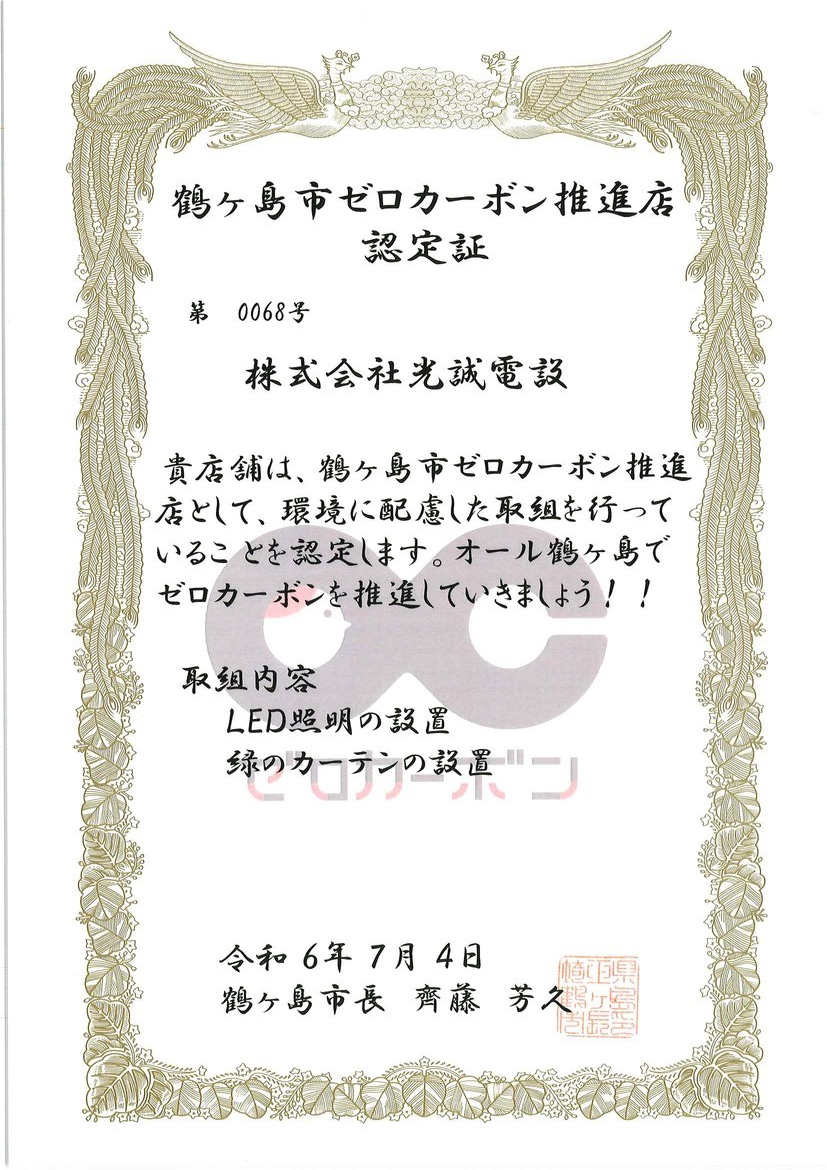 鶴ヶ島市ゼロカーボン推進店
認定証
第　0068号
株式会社光誠電設
貴店舗は、鶴ヶ島市ゼロカーボン推進
店として、環境に配慮した取組を行って
いることを認定します。オール鶴ヶ島で
ゼロカーボンを推進していきましょう！！
取組内容
LED照明の設置
緑のカーテンの設置
ゼロカーボン
令和 6年 7月 4日
鶴ヶ島市長　齊藤　芳久